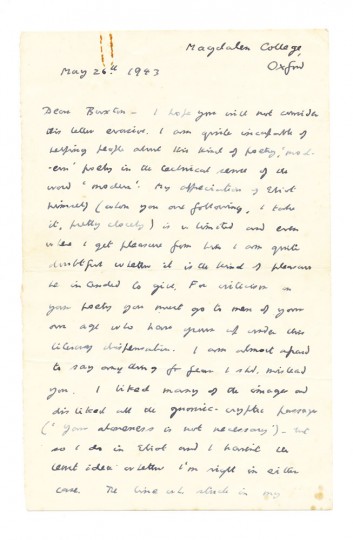 Magdalen College,
Oxford
May 26th 1943
Dear Burton – I hope you will not consider
this letter evasive. I am quite incapable of
helping people about this kind of poetry, 'mod-
-ern' poetry in the technical sense of the
word 'modern'. My appreciation of Eliot
himself (whom you are following, I take
it, pretty closely) is v. limited and even
when I get pleasure from him I am quite
doubtful whether it is the kind of pleasure
he intended to give. For criticism on
your poetry you must go to men of your
own age who have grown up under this
literary dispensation. I am almost afraid
to say anything for fear I shd. mislead
you. I liked many of the images and
disliked all the gnomic-cryptic passages
('Your awareness is not necessary') – but
so I do in Eliot and I haven't the
least idea whether I'm right in either
case. The line wh. stuck in my